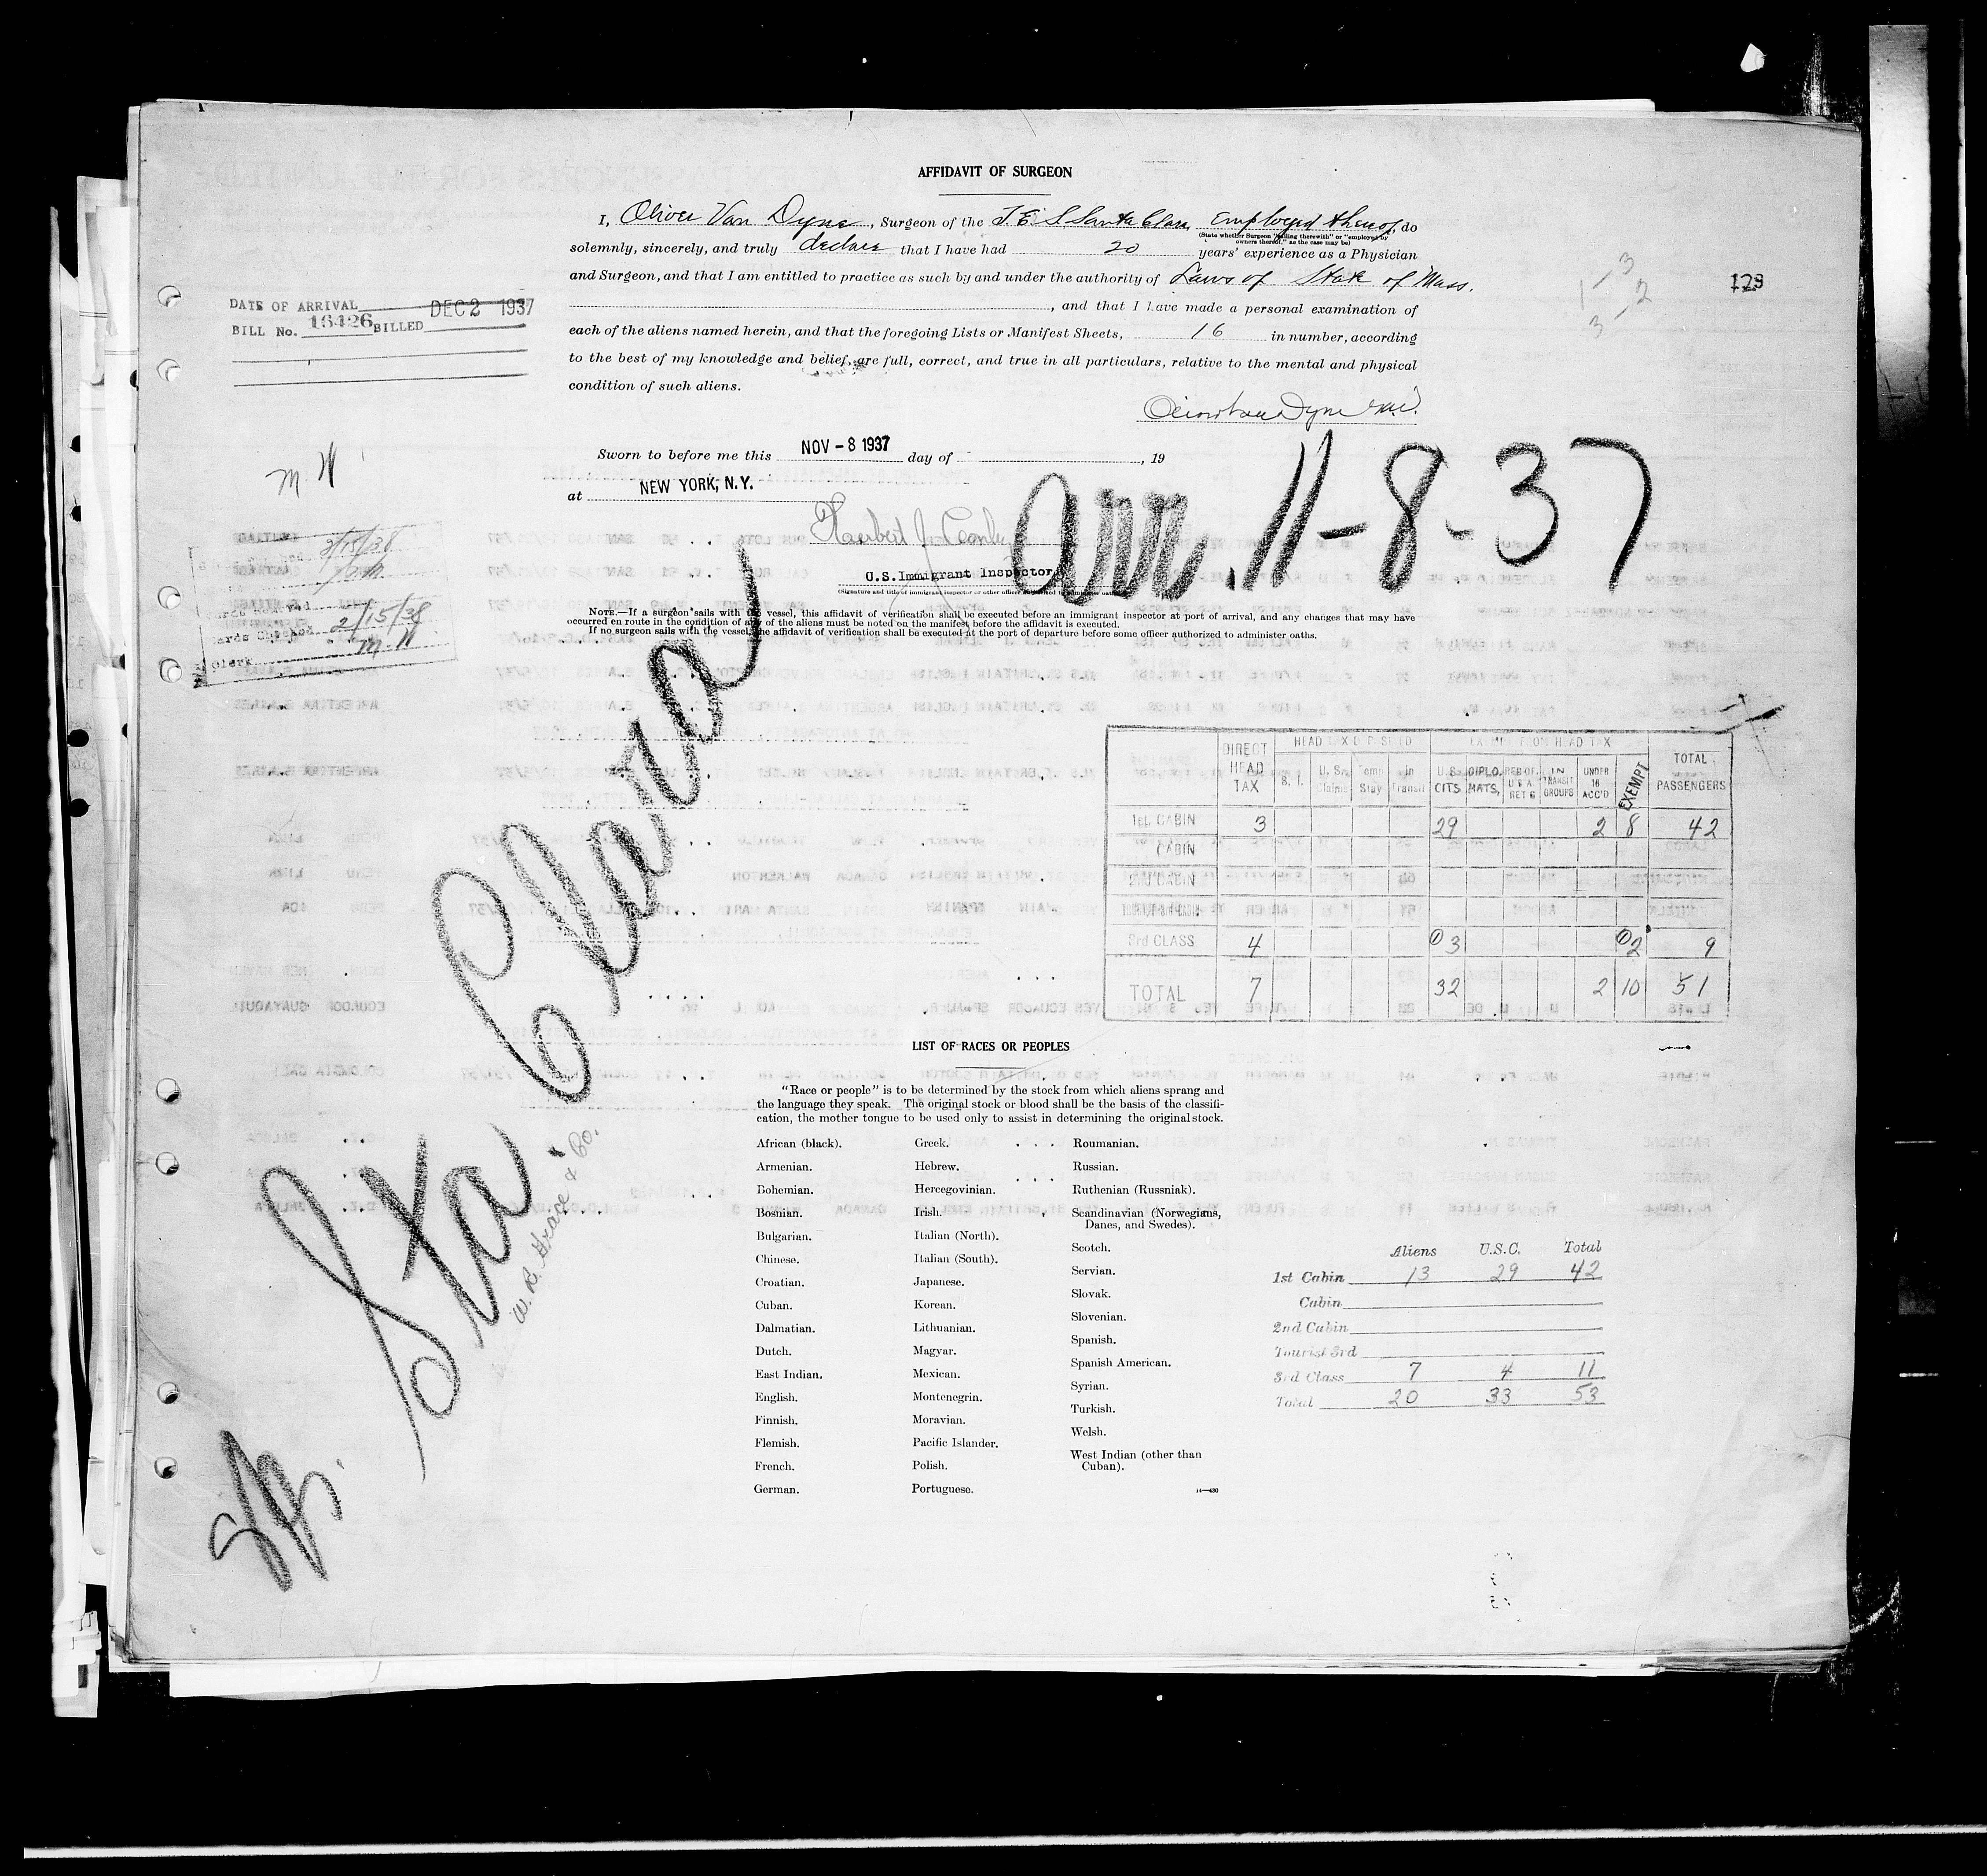 AFFIDAVIT OF SURGEON
I, Oliver Van Dyne, Surgeon of the T.E.S. Santa Clara, Employed thereof, do
(State whether Surgeon "sailing therewith" or "employed by
owners thereof," as the case may be)
solemnly, sincerely, and truly declare that I have had 20 years' experience as a Physician
and Surgeon, and that I am entitled to practice as such by and under the authority of Laws of State of Mass.
, and that I have made a personal examination of
each of the aliens named herein, and that the foregoing Lists or Manifest Sheets, 16 in number, according
to the best of my knowledge and belief, are full, correct, and true in all particulars, relative to the mental and physical
condition of such aliens.
Oliver Van Dyne M.D.
1-3
3-2
123
DATE OF ARRIVAL DEC 2 1937
BILL No. 16426 BILLED
Sworn to before me this NOV - 8 1937 day of , 19
at NEW YORK, N.Y.
Herbert
U.S. Immigrant Inspector
Arr. 11-8-37
M H
3/15/38
2/15/38
Clerk M. H
NOTE.—If a surgeon sails with the vessel, this affidavit of verification shall be executed before an immigrant inspector at port of arrival, and any changes that may have
occurred en route in the condition of any of the aliens must be noted on the manifest before the affidavit is executed.
If no surgeon sails with the vessel, the affidavit of verification shall be executed at the port of departure before some officer authorized to administer oaths.
Sta. Clara
W. R. Grace & Co.
DIRECT HEAD TAX HEAD TAX DEPOSITED EXEMPT FROM HEAD TAX TOTAL PASSENGERS
S. I. U. S. Claims Temp Stay In Transit U.S. CITS DIPLOMATS, RES OF U S A RET G IN TRANSIT GROUPS UNDER 16 ACC'D EXEMPT
1st CABIN 3 29 2 8 42
CABIN
2nd CABIN
3rd CLASS 4 ① 3 ① 2 9
TOTAL 7 32 2 10 51
LIST OF RACES OR PEOPLES
"Race or people" is to be determined by the stock from which aliens sprang and
the language they speak. The original stock or blood shall be the basis of the classifi-
cation, the mother tongue to be used only to assist in determining the original stock.
African (black).
Armenian.
Bohemian.
Bosnian.
Bulgarian.
Chinese.
Croatian.
Cuban.
Dalmatian.
Dutch.
East Indian.
English.
Finnish.
Flemish.
French.
German.
Greek.
Hebrew.
Hercegovinian.
Irish.
Italian (North).
Italian (South).
Japanese.
Korean.
Lithuanian.
Magyar.
Mexican.
Montenegrin.
Moravian.
Pacific Islander.
Polish.
Portuguese.
Roumanian.
Russian.
Ruthenian (Russniak).
Scandinavian (Norwegians,
Danes, and Swedes).
Scotch.
Servian.
Slovak.
Slovenian.
Spanish.
Spanish American.
Syrian.
Turkish.
Welsh.
West Indian (other than
Cuban).
14—430
Aliens U.S.C. Total
1st Cabin 13 29 42
Cabin
2nd Cabin
Tourist 3rd
3rd Class 7 4 11
Total 20 33 53